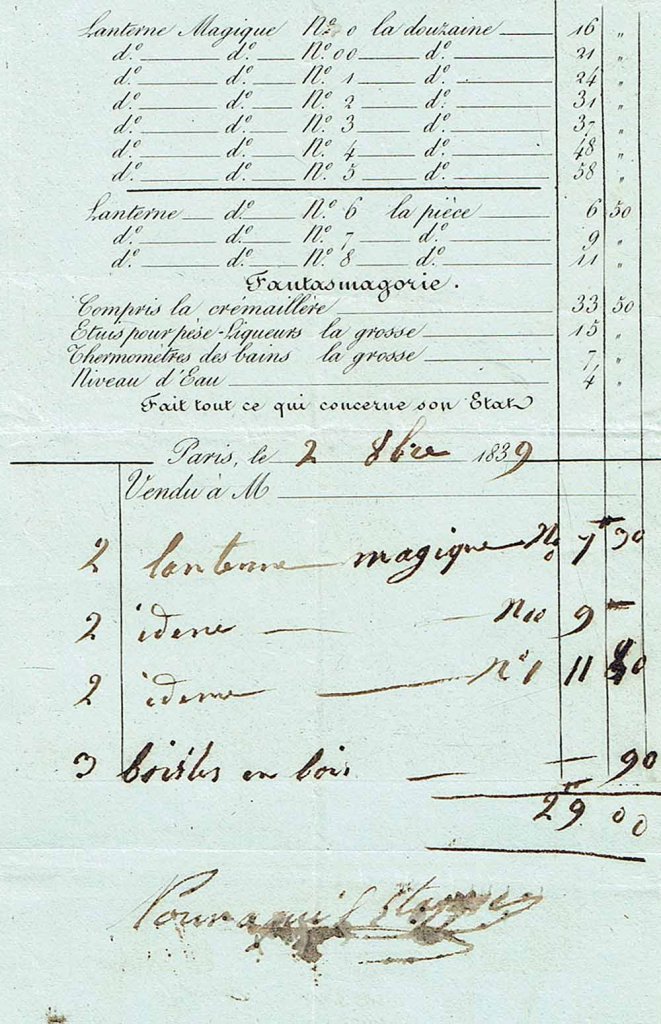 Lanterne Magique N.º 0 la douzaine 16 "
d.º d.º N.º 00 d.º 21 "
d.º d.º N.º 1 d.º 24 "
d.º d.º N.º 2 d.º 31 "
d.º d.º N.º 3 d.º 37 "
d.º d.º N.º 4 d.º 48 "
d.º d.º N.º 5 d.º 58 "
Lanterne d.º N.º 6 la pièce 6 50
d.º d.º N.º 7 d.º 9 "
d.º d.º N.º 8 d.º 11 "
Fantasmagorie.
Compris la crémaillère 33 50
Etuis pour pèse-Liqueurs la grosse 15 "
Thermomètres des bains la grosse 7, "
Niveau d'Eau 4 "
Fait tout ce qui concerne son Etat
Paris, le 2 8bre 1839
Vendu à M
2 lanterne magique No 7 30
2 idem 9 —
2 idem nº 1 11 80
3 boistes en bois — 90
29 00
Pour